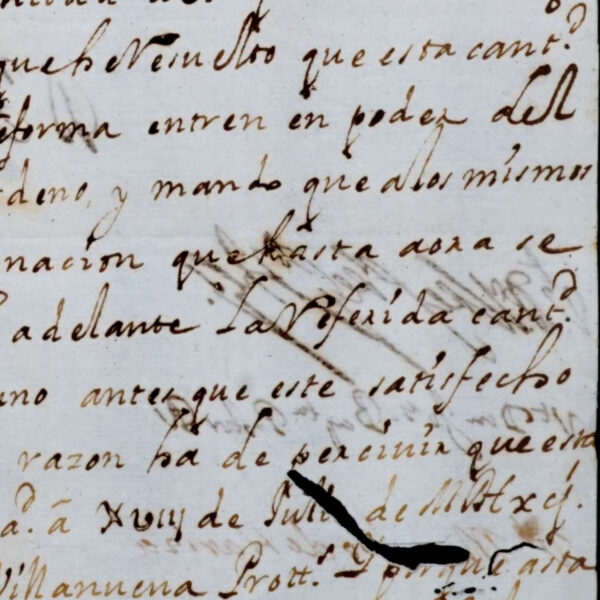 que he Resuelto que esta cant.d
forma entren en poder del
deno, y mando que a los mismos
nacion que hasta aora se
adelante La Referida cant.d
uno antes que este satisfecho
razon ha de percivir que esta
a.d â XVIII de Jull de
Villanueva Prott.o Y porque asta